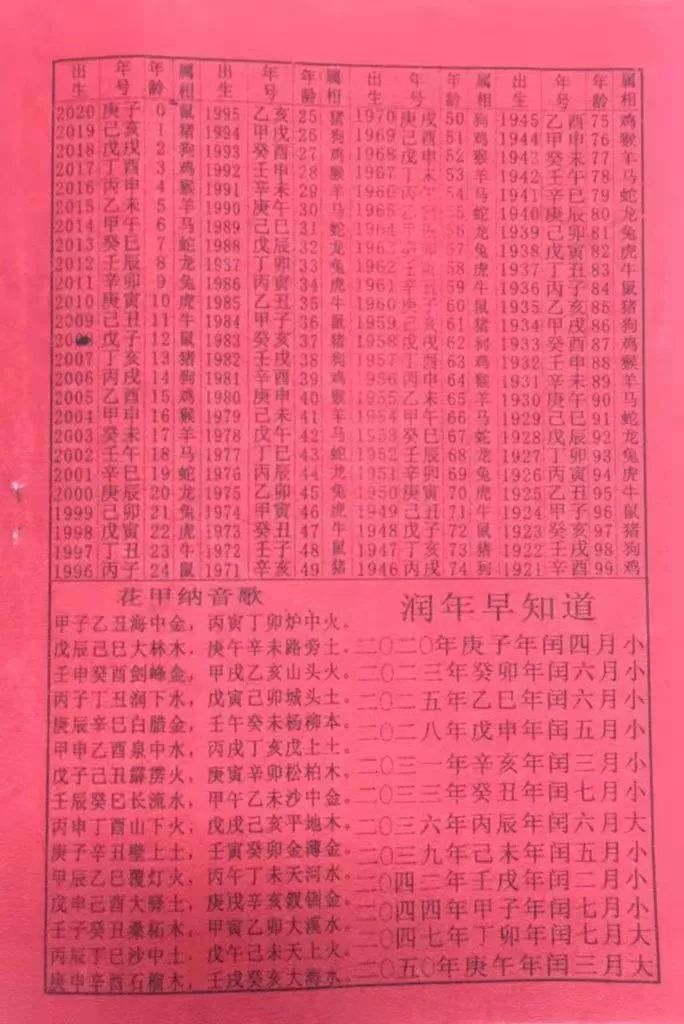 出生 年号 年龄 属相 出生 年号 年龄 属相 出生 年号 年龄 属相 出生 年号 年龄 属相
2020 庚子 0 鼠 1995 乙亥 25 猪 1970 庚戌 50 狗 1945 乙酉 75 鸡
2019 己亥 1 猪 1994 甲戌 26 狗 1969 己酉 51 鸡 1944 甲申 76 猴
2018 戊戌 2 狗 1993 癸酉 27 鸡 1968 戊申 52 猴 1943 癸未 77 羊
2017 丁酉 3 鸡 1992 壬申 28 猴 1967 丁未 53 羊 1942 壬午 78 马
2016 丙申 4 猴 1991 辛未 29 羊 1966 丙午 54 马 1941 辛巳 79 蛇
2015 乙未 5 羊 1990 庚午 30 马 1965 乙巳 55 蛇 1940 庚辰 80 龙
2014 甲午 6 马 1989 己巳 31 蛇 1964 甲辰 56 龙 1939 己卯 81 兔
2013 癸巳 7 蛇 1988 戊辰 32 龙 1963 癸卯 57 兔 1938 戊寅 82 虎
2012 壬辰 8 龙 1987 丁卯 33 兔 1962 壬寅 58 虎 1937 丁丑 83 牛
2011 辛卯 9 兔 1986 丙寅 34 虎 1961 辛丑 59 牛 1936 丙子 84 鼠
2010 庚寅 10 虎 1985 乙丑 35 牛 1960 庚子 60 鼠 1935 乙亥 85 猪
2009 己丑 11 牛 1984 甲子 36 鼠 1959 己亥 61 猪 1934 甲戌 86 狗
戊子 12 鼠 1983 癸亥 37 猪 1958 戊戌 62 狗 1933 癸酉 87 鸡
2007 丁亥 13 猪 1982 壬戌 38 狗 1957 丁酉 63 鸡 1932 壬申 88 猴
2006 丙戌 14 狗 1981 辛酉 39 鸡 1956 丙申 64 猴 1931 辛未 89 羊
2005 乙酉 15 鸡 1980 庚申 40 猴 1955 乙未 65 羊 1930 庚午 90 马
2004 甲申 16 猴 1979 己未 41 羊 1954 甲午 66 马 1929 己巳 91 蛇
2003 癸未 17 羊 1978 戊午 42 马 1953 癸巳 67 蛇 1928 戊辰 92 龙
2002 壬午 18 马 1977 丁巳 43 蛇 1952 壬辰 68 龙 1927 丁卯 93 兔
2001 辛巳 19 蛇 1976 丙辰 44 龙 1951 辛卯 69 兔 1926 丙寅 94 虎
2000 庚辰 20 龙 1975 乙卯 45 兔 1950 庚寅 70 虎 1925 乙丑 95 牛
1999 己卯 21 兔 1974 甲寅 46 虎 1949 己丑 71 牛 1924 甲子 96 鼠
1998 戊寅 22 虎 1973 癸丑 47 牛 1948 戊子 72 鼠 1923 癸亥 97 猪
1997 丁丑 23 牛 1972 壬子 48 鼠 1947 丁亥 73 猪 1922 壬戌 98 狗
1996 丙子 24 鼠 1971 辛亥 49 猪 1946 丙戌 74 狗 1921 辛酉 99 鸡
花甲纳音歌
甲子乙丑海中金，丙寅丁卯炉中火。
戊辰己巳大林木，庚午辛未路旁土。
壬申癸酉剑峰金，甲戌乙亥山头火。
丙子丁丑润下水，戊寅己卯城头土。
庚辰辛巳白腊金，壬午癸未杨柳木。
甲申乙酉泉中水，丙戌丁亥戊上土。
戊子己丑霹雳火，庚寅辛卯松柏木。
壬辰癸巳长流水，甲午乙未沙中金。
丙申丁酉山下火，戊戌己亥平地木。
庚子辛丑壁上土，壬寅癸卯金薄金。
甲辰乙巳覆灯火，丙午丁未天河水。
戊申己酉大驿土，庚戌辛亥钗钏金。
壬子癸丑桑柘木，甲寅乙卯大溪水。
丙辰丁巳沙中土，戊午己未天上火。
庚申辛酉石榴木，壬戌癸亥大海水。
润年早知道
二〇二〇年庚子年闰四月小
二〇二三年癸卯年闰六月小
二〇二五年乙巳年闰六月小
二〇二八年戊申年闰五月小
二〇三一年辛亥年闰三月小
二〇三三年癸丑年闰七月小
二〇三六年丙辰年闰六月大
二〇三九年己未年闰五月小
二〇四二年壬戌年闰二月小
二〇四四年甲子年闰七月小
二〇四七年丁卯年闰七月大
二〇五〇年庚午年闰三月大